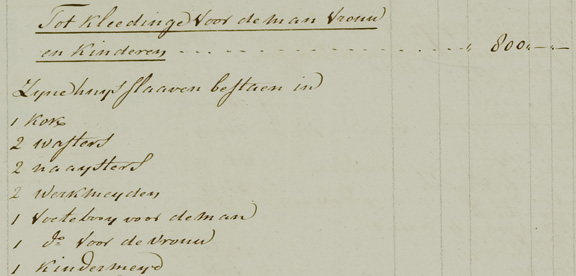 Tot kleedinge voor de man vrouw
en kinderen - - - - - - - - - - - - - - - - - - " 800,,—,,—
Zyne huys slaaven bestaen in
1 kok
2 wassers
2 naaysters
2 werkmeyden
1 voeteboy voor de man
1 do voor de vrouw
1 kindermeyd